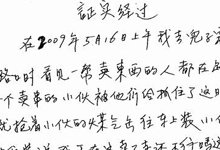 证实经过
在2009年5月16日上午我去兒子家
路口时看见一帮卖东西的人都在
一个卖枣的小伙被他们给抓住了这时
就抢着小伙的煤气缶往车上装小伙